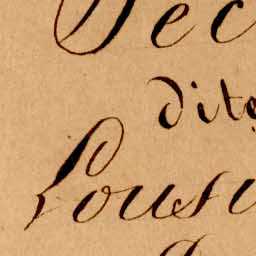 Sec
dite
Lousi